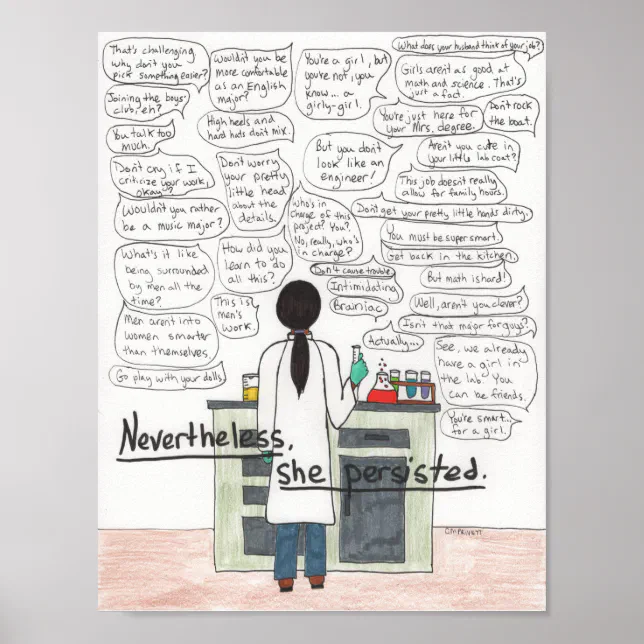 That's challenging
why don't you
pick something easier?
Wouldn't you be
more comfortable
as an English
major?
You're a girl, but
you're not, you
know... a
girly-girl.
What does your husband think of your job?
Girls aren't as good at
math and science. That's
just a fact.
Joining the boys'
club, eh?
High heels and
hard hats don't mix.
You're just here for
your Mrs. degree.
Don't rock
the boat.
You talk too
much.
But you don't
look like an
engineer!
Aren't you cute in
your little lab coat?
Don't cry if I
criticize your work,
okay?
Don't worry
your pretty
little head
about the
details.
This job doesn't really
allow for family hours.
Wouldn't you rather
be a music major?
Who's in
charge of this
project? You?
No, really, who's
in charge?
Don't get your pretty little hands dirty.
You must be super smart.
What's it like
being surrounded
by men all the
time?
How did you
learn to do
all this?
Get back in the kitchen.
Don't cause trouble
But math is hard!
Intimidating
Brainiac
This is
men's
work.
Well, aren't you clever?
Men aren't into
women smarter
than themselves.
Isn't that major for guys?
Actually...
See, we already
have a girl in
the lab. You
can be friends.
Go play with your dolls.
You're smart...
for a girl.
Nevertheless,
she persisted.
CMPRIVETT